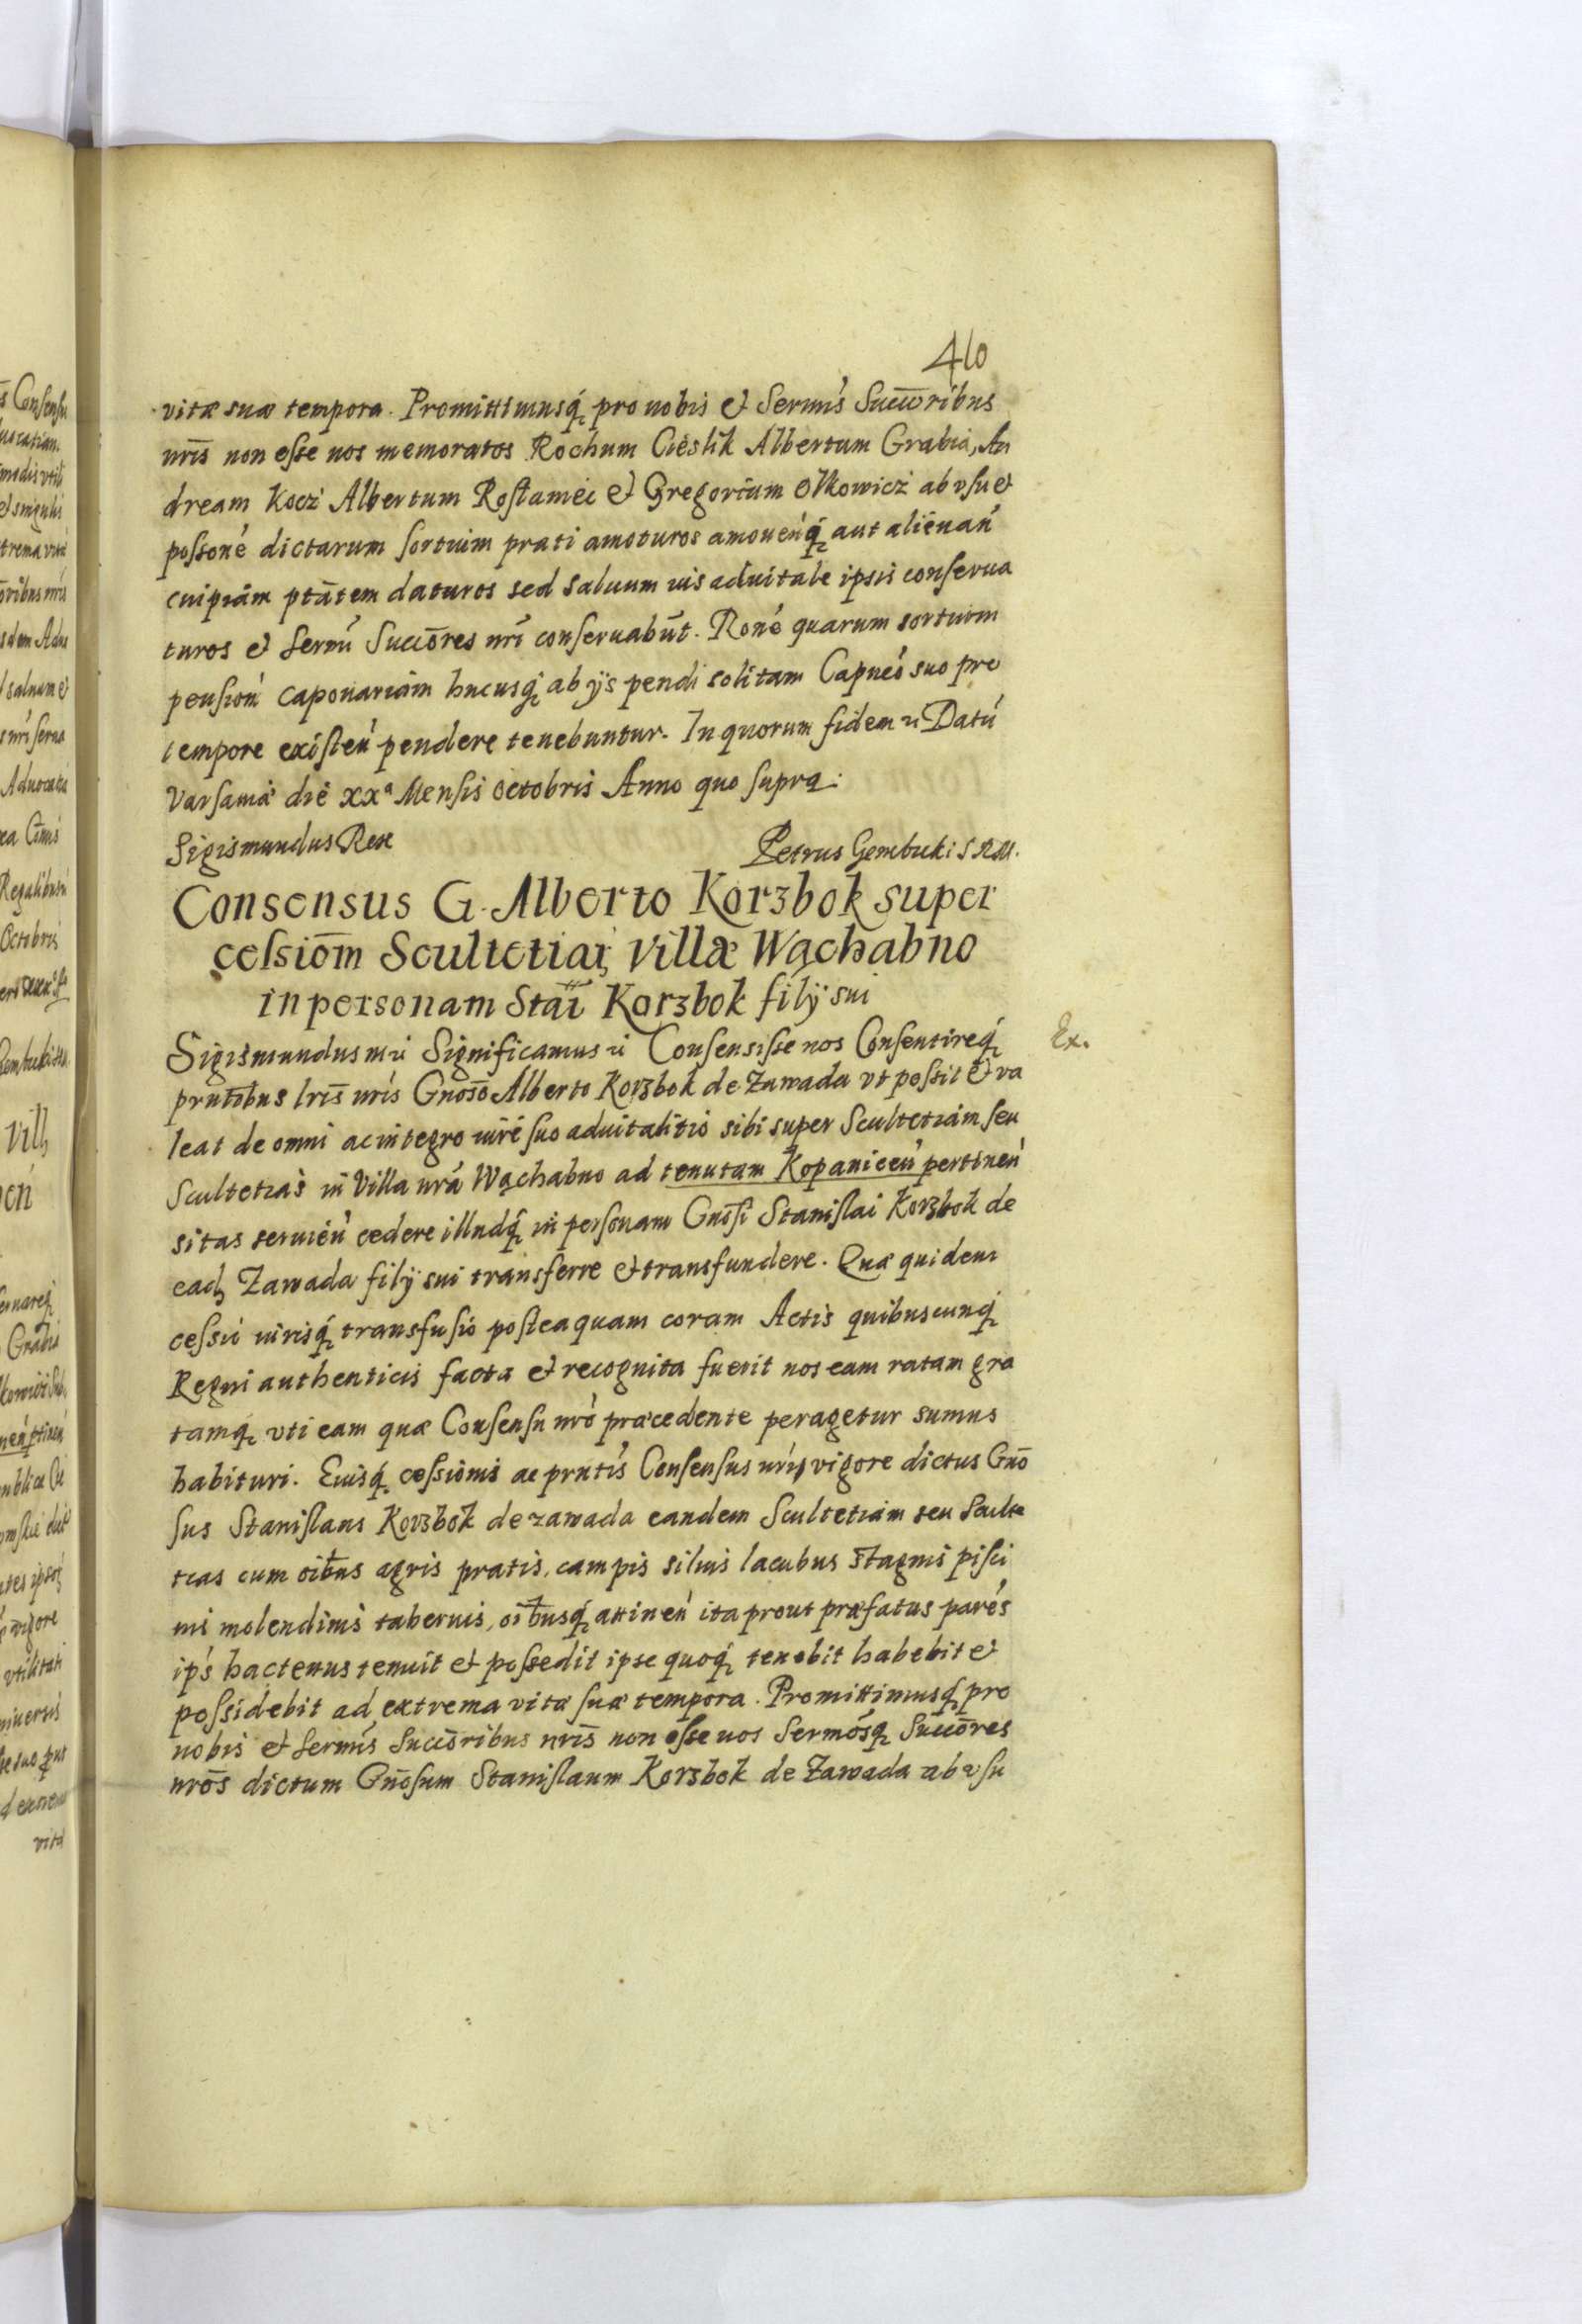 410
vitæ suæ tempora. Promittimusq́ pro nobis et Sermís Succōribus
nrīs non eſse nos memoratos Rochum Cieslik Albertum Grabia, An
dream Kocz Albertum Roſtamei et Gregorium Olkowicz ab vſu et
poſsoné dictarum ſortium prati amoturos amouenq́ aut alienan
cuipiám ptātem daturos sed saluum ius aduitale ipsis conſerua
turos et Sermí Succōres nrí conſeruabūt. Roné quarum sortium
penſioń caponariám hucusq́ ab ijs pendi solitam Capneó suo pro
tempore exiſteń pendere tenebuntur. In quorum fidem ꝛc Datú
Varſauiá die xxa Menſis octobris Anno quo ſupra.
Sigismundus Rex
Petrus Gembicki S R M.
Consensus G. Alberto Korzbok super
ceſsiōm Scultetiaꝝ villæ Wachabno
in personam Stāi Korzbok filÿ sui
Sigismundus III ꝛc Significamus ꝛc Conſensiſse nos Conſentireq́
Ex.
prntōbus lrīs nrís Gnosō Alberto Korzbok de Zawada vt poſsit et va
leat de omni ac integro iuré ſuo aduitalitió sibi super Scultetiám ſeu
Scultetiás in Villa nrá Wachabno ad tenutam Kopaniceń pertineń
sitas seruień cedere illudq́ in perſonam Gnōſi Staniſlai Korzbok de
ead Zawada filÿ sui transferre et transfundere. Quæ quidem
ceſsió iurisq́ transfuſió poſteaquam coram Actis quibuscunq́
Regni authenticis facta et recognita fuerit nos eam ratam gra
tamq́ vti eam quæ Conſenſu nró præcedente peragetur sumus
habituri. Euisq́ ceſsionis ac prntís Conſensus nrí vigore dictus Gnō
ſus Staniſlaus Korzbok de zawada eandem Scultetiám seu Sculte
tias cum oībus agris pratis, campis siluis lacubus stagnis piſci
nis molendinis tabernis, oībusq́ attineń ita prout præfatus parés
ipś hactenus tenuit et poſsedit ipse quoq́ tenebit habebit et
poſsidebit ad extrema vitæ ſuæ tempora. Promittimusq́ pro
nobis et Sermís Succōribus nrīs non eſse nos Sermósq́ Succōres
nrōs dictum Gnōſum Staniſlaum Korzbok de Zawada ab vſu